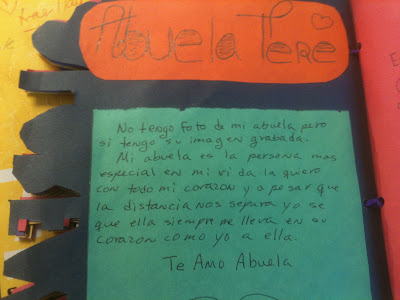 Abuela Tere
No tengo foto de mi abuela pero
si tengo su imagen grabada.
Mi abuela es la persona mas
especial en mi vida la quiero
con todo mi corazon y a pesar que
la distancia nos separa yo se
que ella siempre me lleva en su
corazon como yo a ella.
Te Amo Abuela